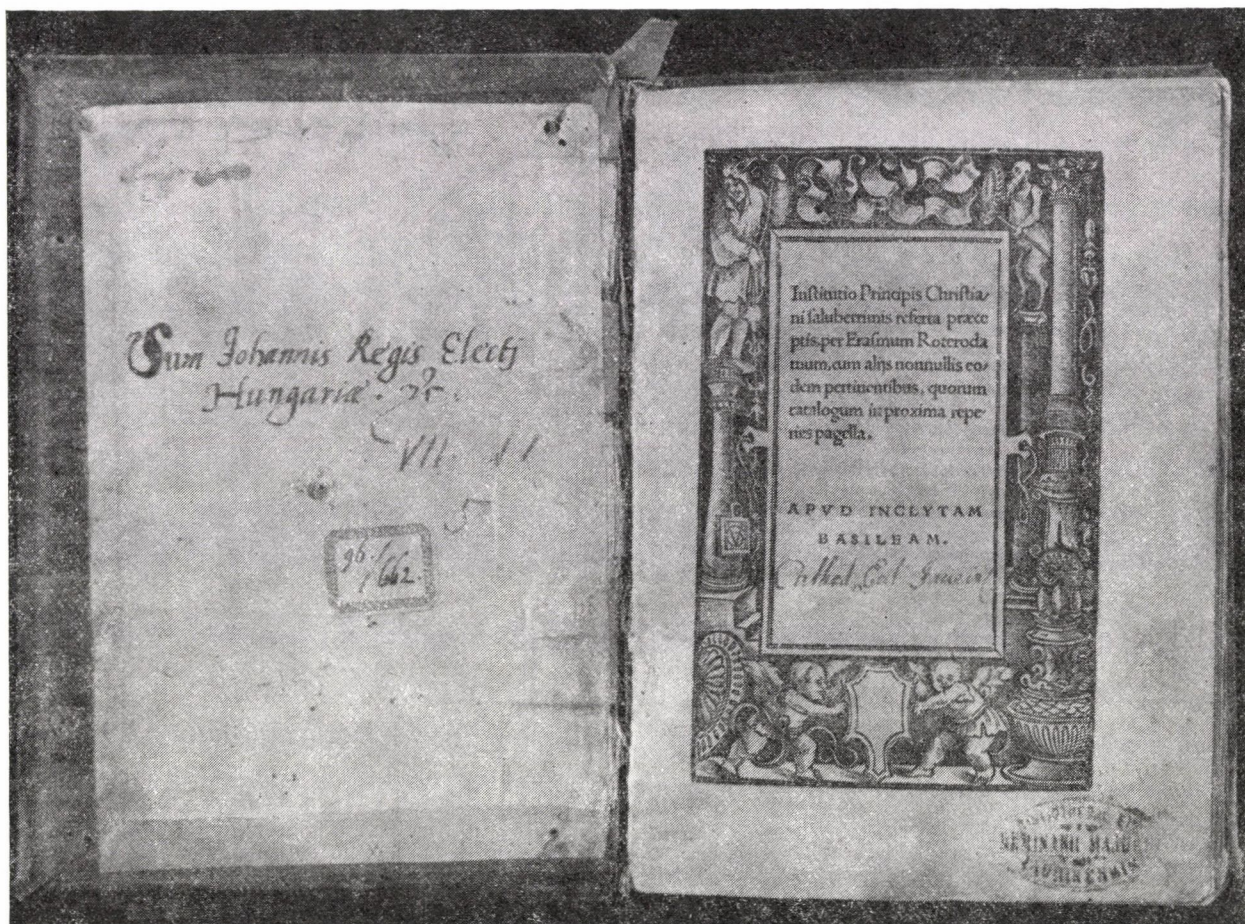 Sum Johannis Regis Electj
Hungariæ.
VII.
96.
662.
Inſtitutio Principis Chriſtia/
ni ſaluberrimis referta præce
ptis, per Eraſmum Roteroda
mum, cum alijs nonnullis eo/
dem pertinentibus, quorum
catalogum in proxima repe/
ries pagella.
APVD INCLYTAM
BASILEAM.
SEMINARII